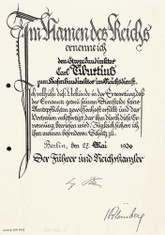 Im Namen des Reichs
ernenne ich
den
Carl Tiburtius
zum
Ich vollziehe diese Urkunde in der Erwartung, daß
der Ernannte getreu seinem Diensteide seine
Amtspflichten gewissenhaft erfüllt und das
Vertrauen rechtfertigt, das ihm durch diese Er-
nennung bewiesen wird. Zugleich sichere ich
ihm meinen besonderen Schutz zu.
Berlin, den 22. Mai 1936
Der Führer und Reichskanzler